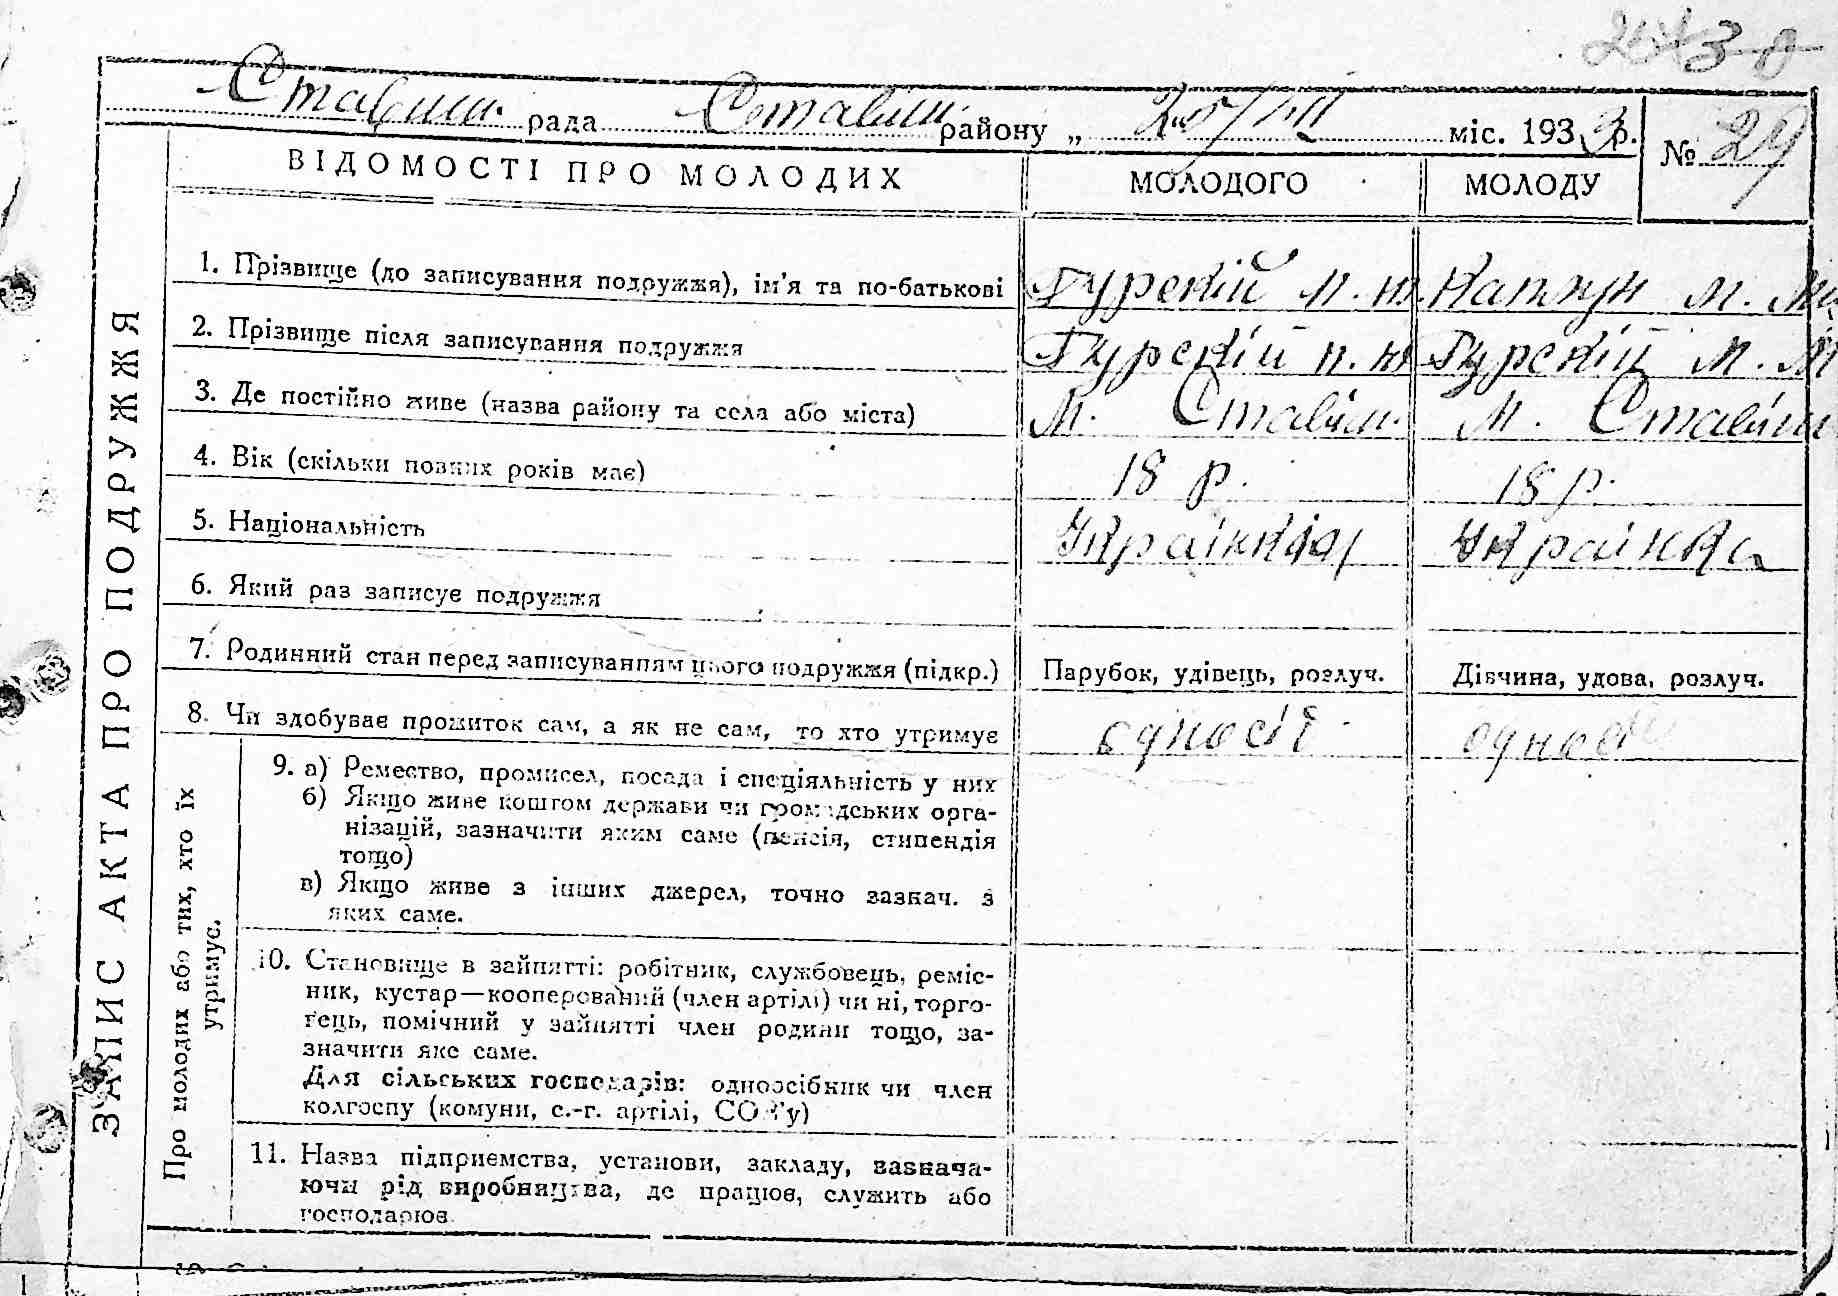 Ставищ. рада Ставищ. району „ 25/VIII міс. 1933 р.
№ 29
ВІДОМОСТІ ПРО МОЛОДИХ МОЛОДОГО МОЛОДУ
ЗАПИС АКТА ПРО ПОДРУЖЖЯ
1. Прізвище (до записування подружжя), ім'я та по-батькові Гурскій п. ю. Каплун м. ми
2. Прізвище після записування подружжя Гурскій п. ю Гурскій м. м
3. Де постійно живе (назва району та села або міста) м. Ставищ. м. Ставищ
4. Вік (скільки повних років має) 18 р. 18 р.
5. Національність Українка
6. Який раз записує подружжя
7. Родинний стан перед записуванням цього подружжя (підкр.) Парубок, удівець, розлуч. Дівчина, удова, розлуч.
8. Чи здобуває прожиток сам, а як не сам, то хто утримує односіб односіб
Про молодих або тих, хто їх
утримує.
9. а) Ремество, промисел, посада і спеціяльність у них
б) Якщо живе коштом держави чи громадських орга-
нізацій, зазначити яким саме (пенсія, стипендія
тощо)
в) Якщо живе з інших джерел, точно зазнач. з
яких саме.
10. Становище в зайнятті: робітник, службовець, реміс-
ник, кустар—кооперований (член артілі) чи ні, торго-
вець, помічний у зайнятті член родини тощо, за-
значити яке саме.
Для сільських господарів: одноосібник чи член
колгоспу (комуни, с.-г. артілі, СОЗ'у)
11. Назва підприємства, установи, закладу, зазнача-
ючи рід виробництва, де працює, служить або
господарює